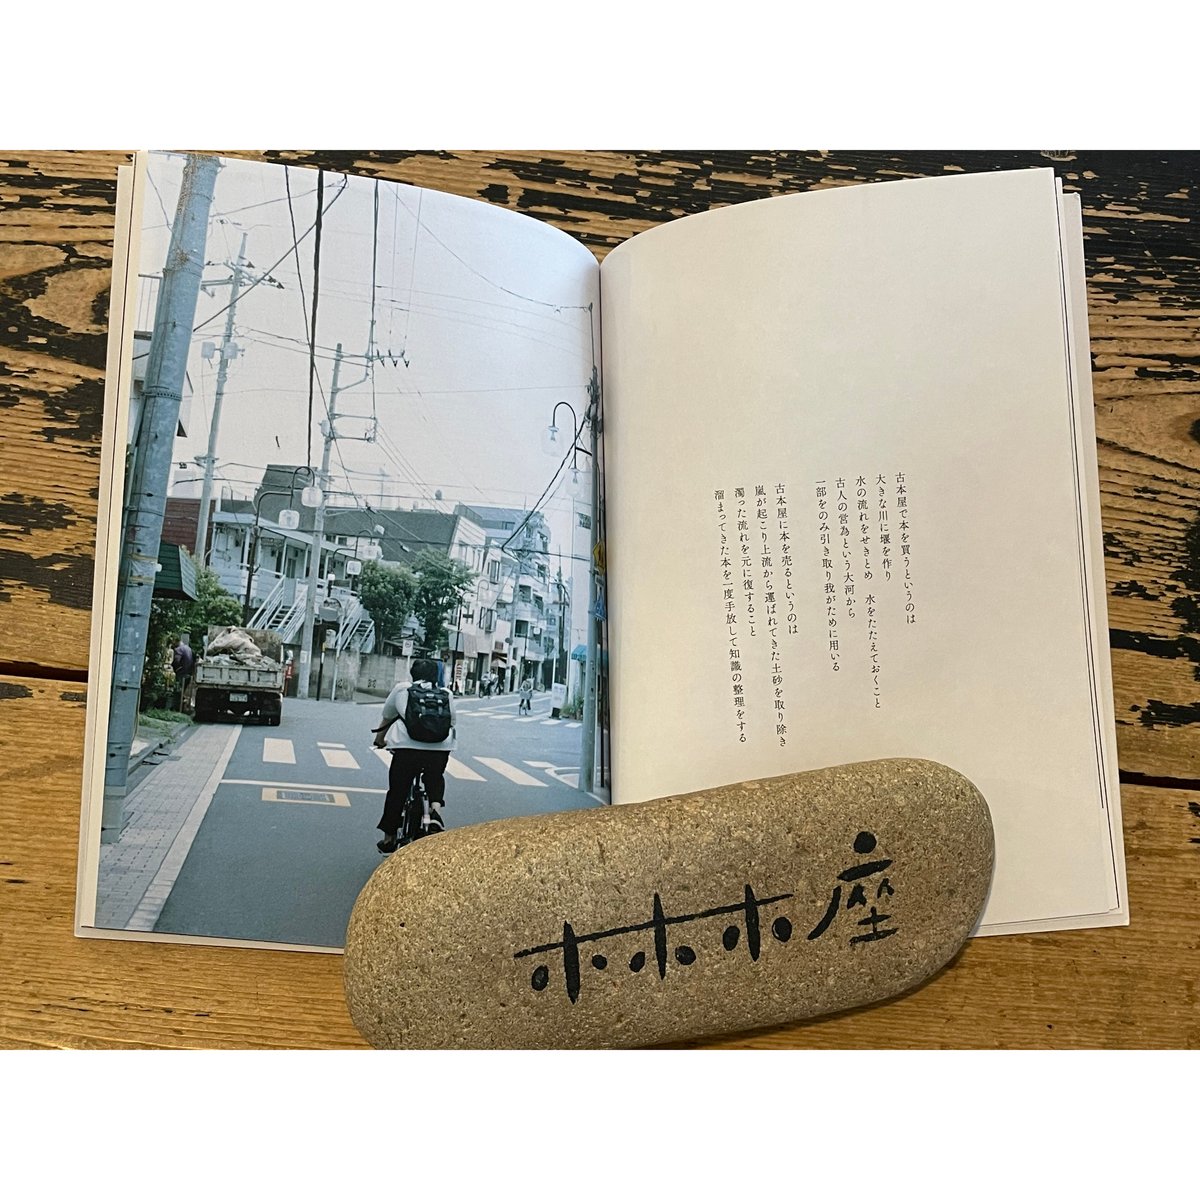 古本屋で本を買うというのは
大きな川に堰を作り
水の流れをせきとめ　水をたたえておくこと
古人の営為という大河から
一部をのみ引き取り我がために用いる
古本屋に本を売るというのは
嵐が起こり上流から運ばれてきた土砂を取り除き
濁った流れを元に復すること
溜まってきた本を一度手放して知識の整理をする
ホホホ座